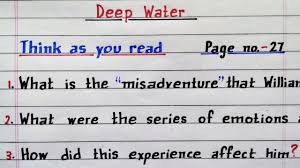 Deep Water
Think as you read Page no.-27
1. What is the "misadventure" that William
2. What were the series of emotions a
3. How did this experience affect him?